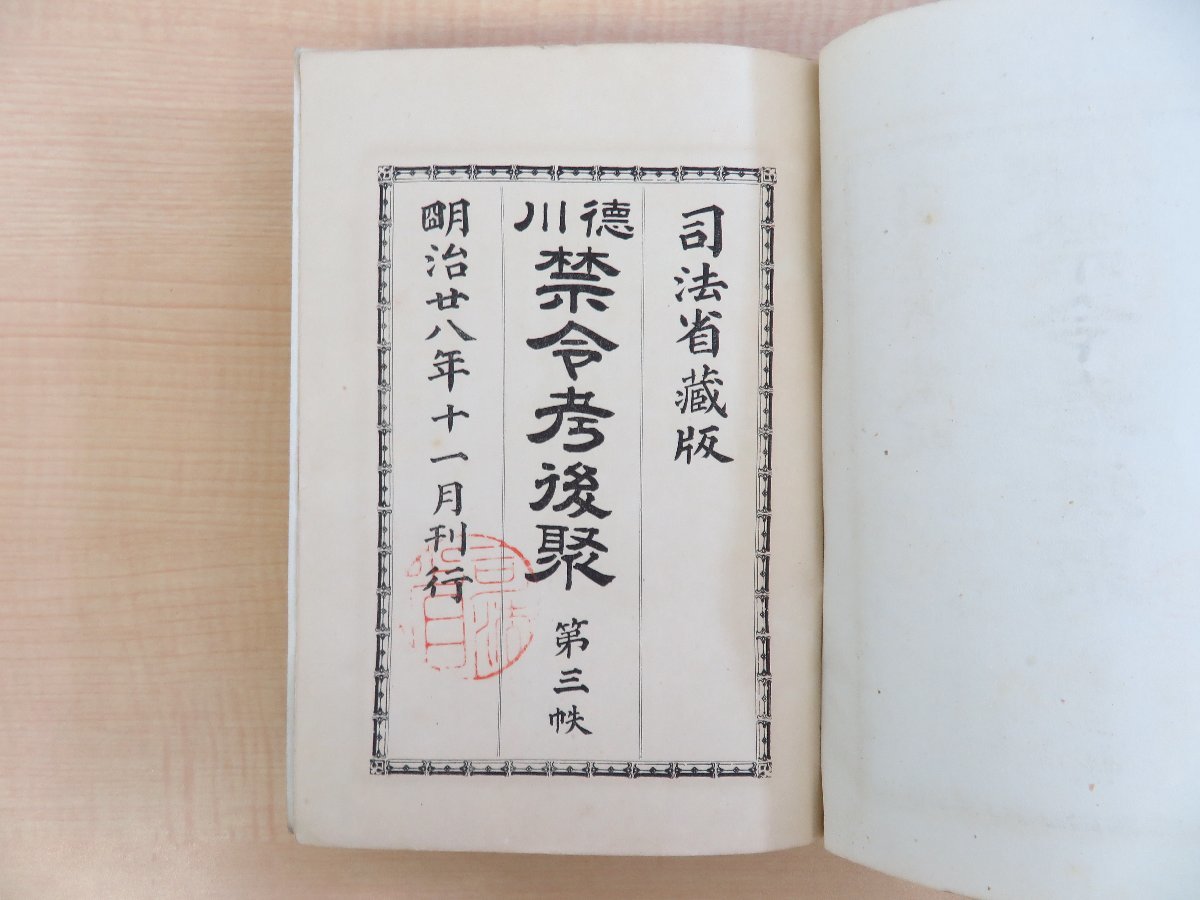 司法省藏版
德川
禁令考後聚
第三帙
明治廿八年十一月刊行